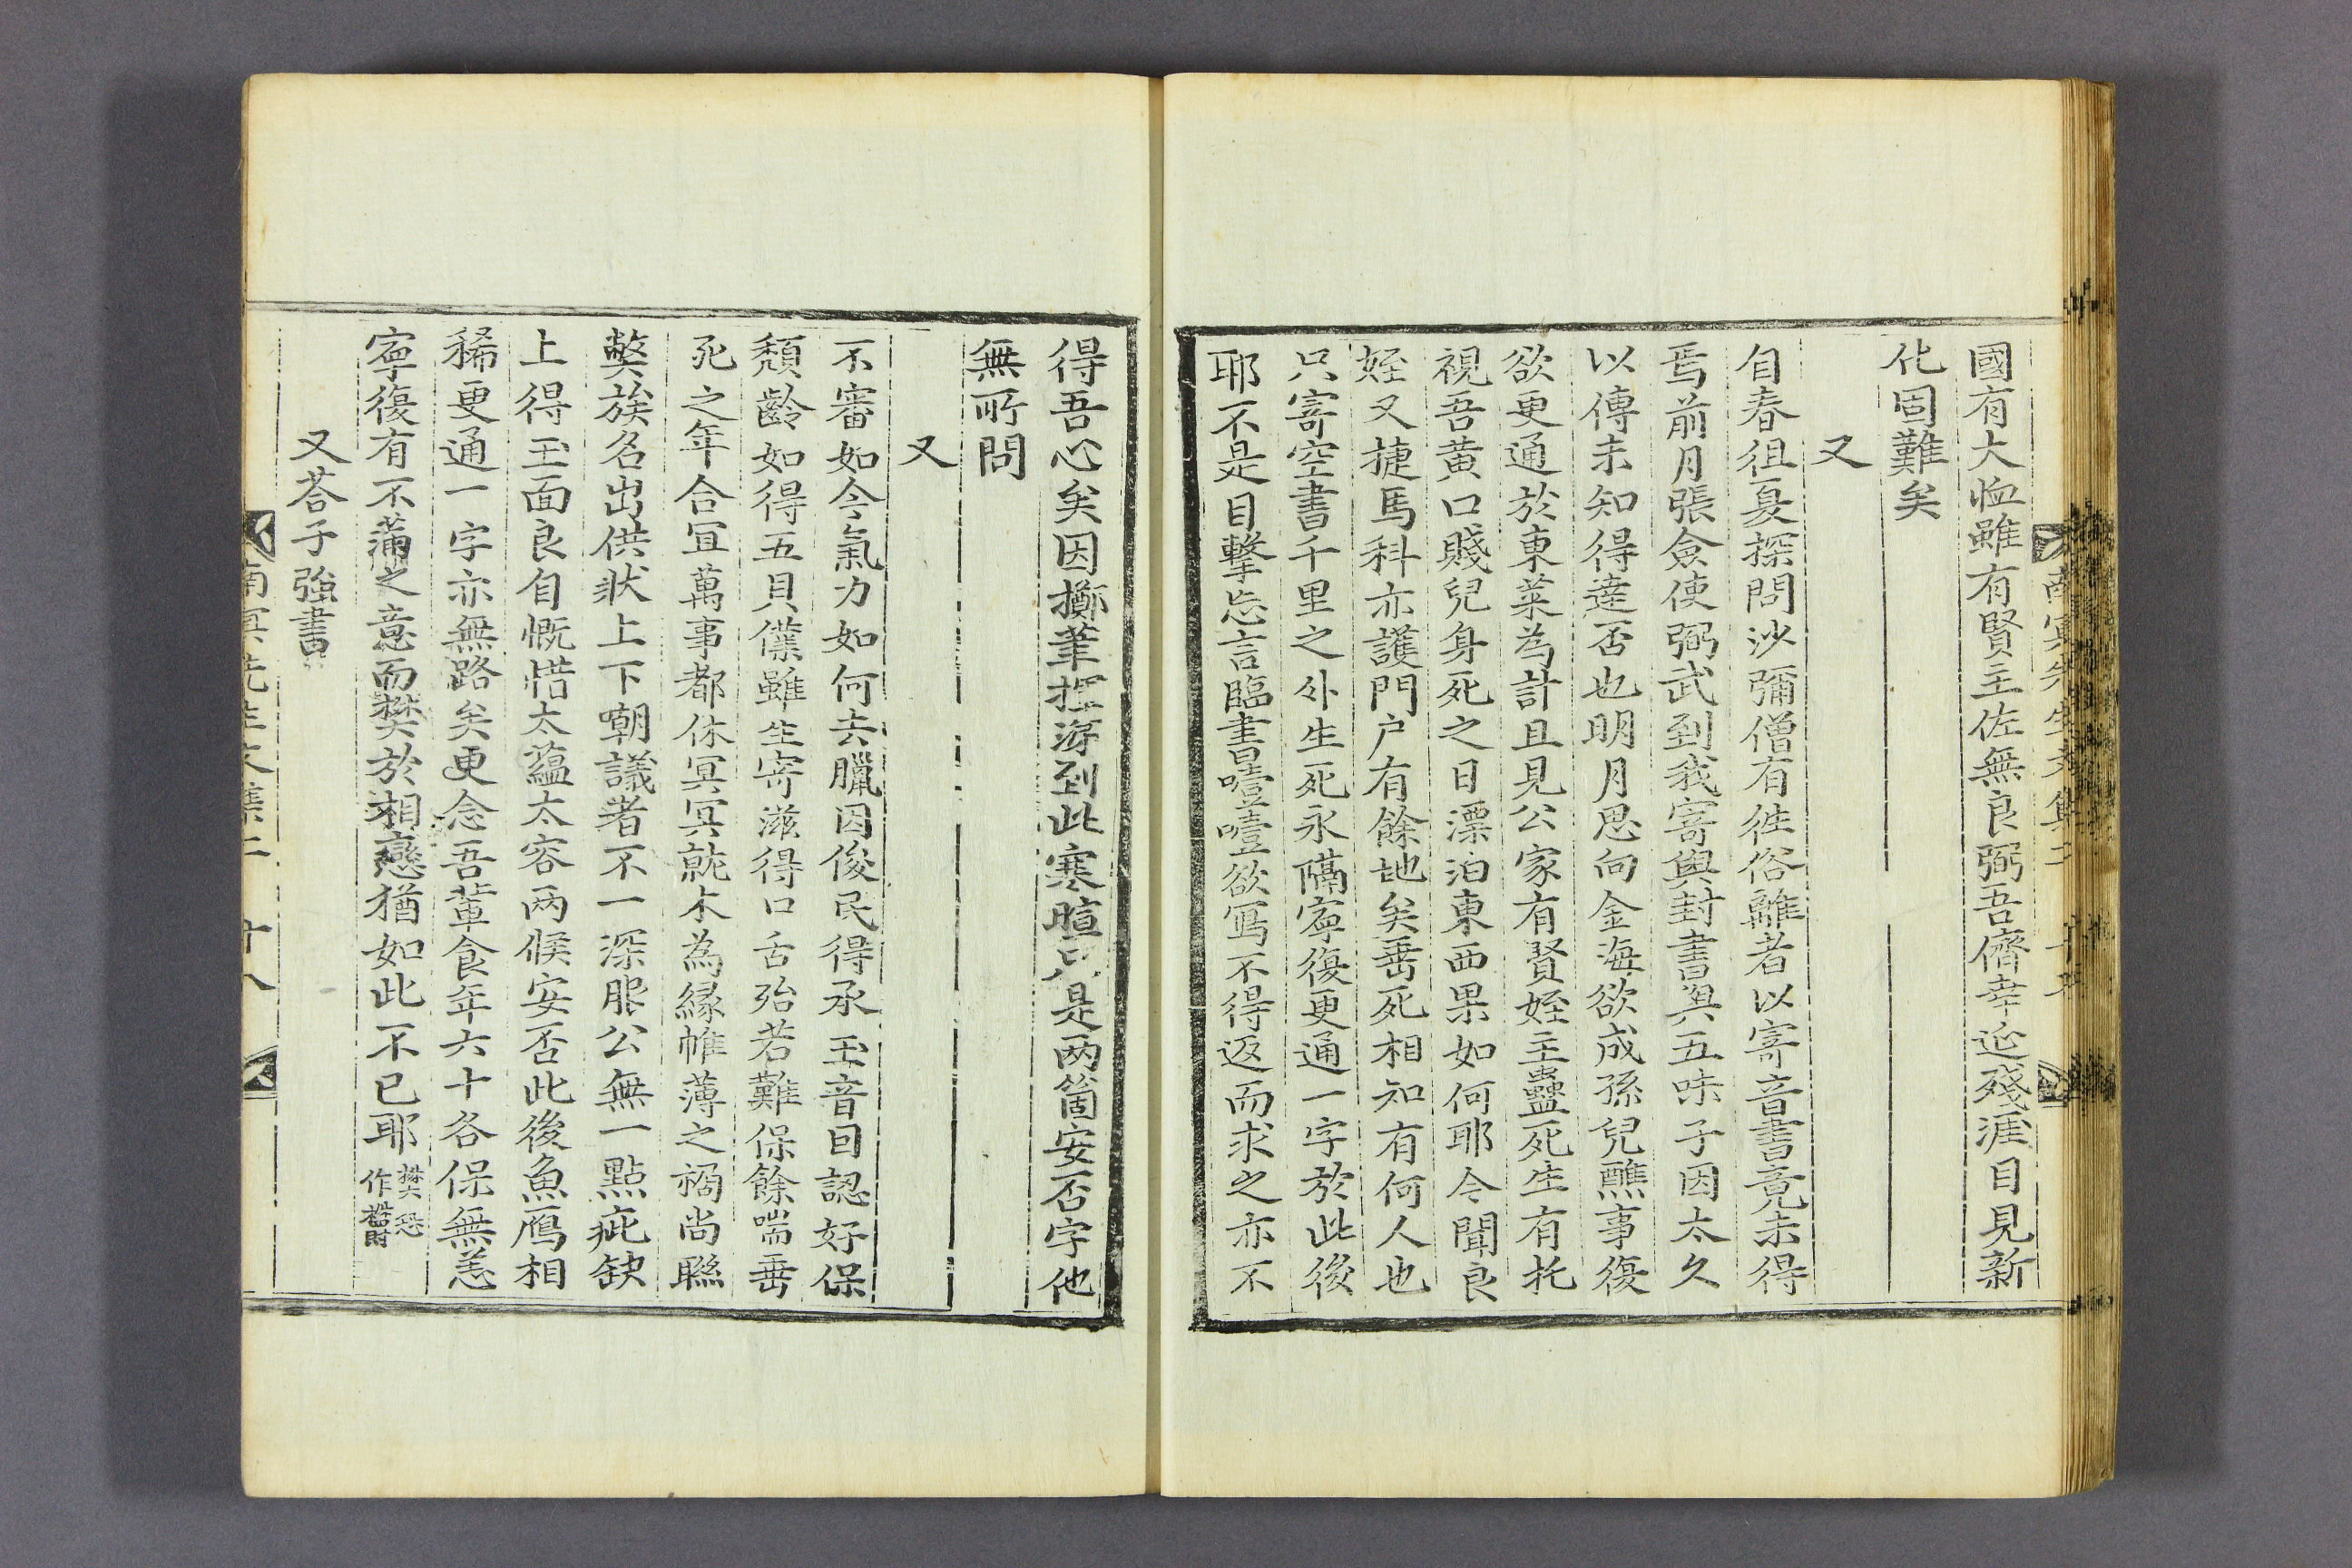 南冥先生文集二
國有大恤雖有賢主佐無良弼吾儕幸近殘涯目見新
化固難矣
又
自春徂夏探問沙彌僧有徃俗離者以寄音書竟未得
焉前月張僉使弼武到我寄與封書與五味子因太久
以傳未知得達否也明月思向金海欲成孫兒醮事復
欲更通於東菜為計且見公家有賢姪主蠱死生有托
視吾黃口賤兒身死之日漂泊東西果如何耶今聞良
姪又捷馬科亦護門户有餘地矣垂死相知有何人也
只寄空書千里之外生死永隔寧復更通一字於此後
耶不是目擊忘言臨書噎噎欲寫不得返而求之亦不
得吾心矣因擲筆抆淚到此寒暄只是兩箇安否字他
無所問
又
不審如今氣力如何去臘因俊民得承 玉音目認好保
頹齡如得五貝僕雖生寄滋得口舌殆若難保餘喘垂
死之年合宜萬事都休冥冥就木為緣帷薄之禍尚聯
弊族名出供狀上下嘲議者不一深服公無一點疵缺
上得玉面良自慨惜太蘊太容兩候安否此後魚鴈相
稀更通一字亦無路矣更念吾輩食年六十各保無恙
寧復有不滿之意而樊於相戀猶如此不已耶 樊恐
作礬
又荅子強書
南冥先生文集二 十八